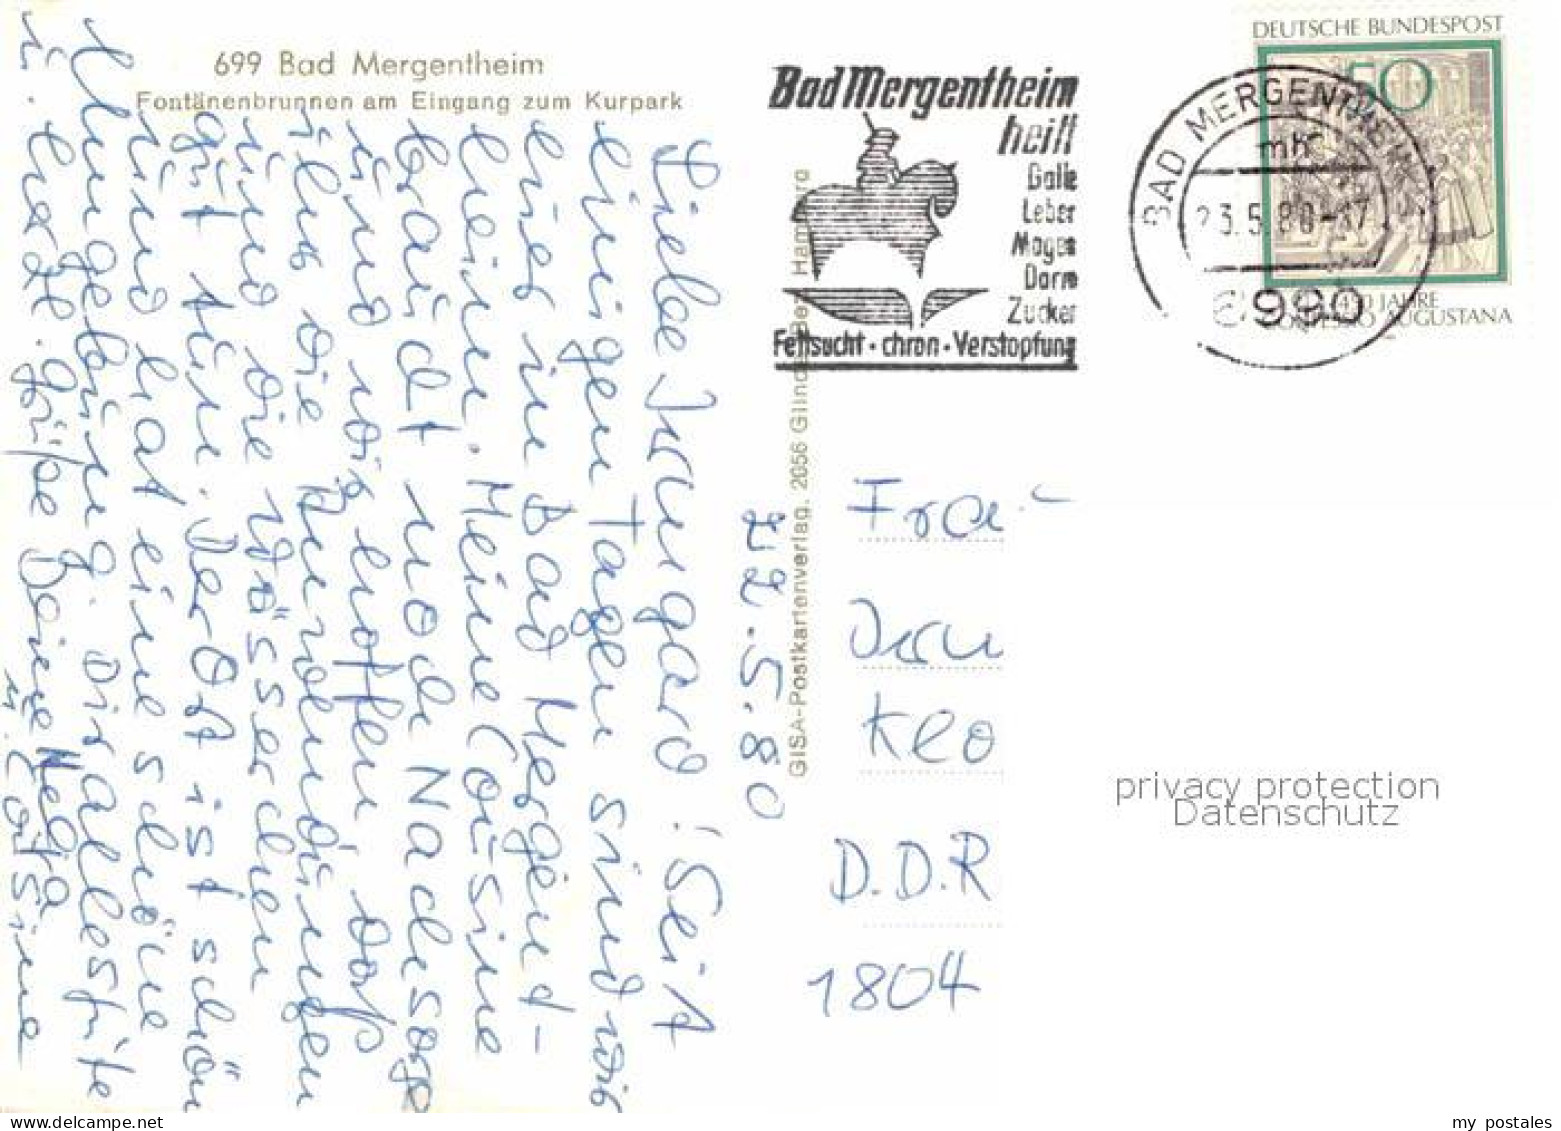 699 Bad Mergentheim
Fontänenbrunnen am Eingang zum Kurpark
22.5.80
Liebe Irmgard! Seit
einigen Tagen sind wir
hier in Bad Mergent-
heim. Meine Cousine
braucht noch Nachsorge
und wir hoffen, daß
ihr die Anwendungen
und die Wässerchen
gut tun. Der Ort ist schön
und hat eine schöne
Umgebung. Dir alles Gute
u. herzl. Grüße Deine Helga
u. Cousine
GISA-Postkartenverlag, 2056 Glinde Bez. Hamburg
Bad Mergentheim
heilt
Galle
Leber
Magen
Darm
Zucker
Fettsucht · chron · Verstopfung
DEUTSCHE BUNDESPOST
50
450 JAHRE
CONFESSIO AUGUSTANA
BAD MERGENTHEIM
mh
23.5.80-17
6990
Frau
Irm
Klo
D.D.R
1804
privacy protection
Datenschutz
my postales